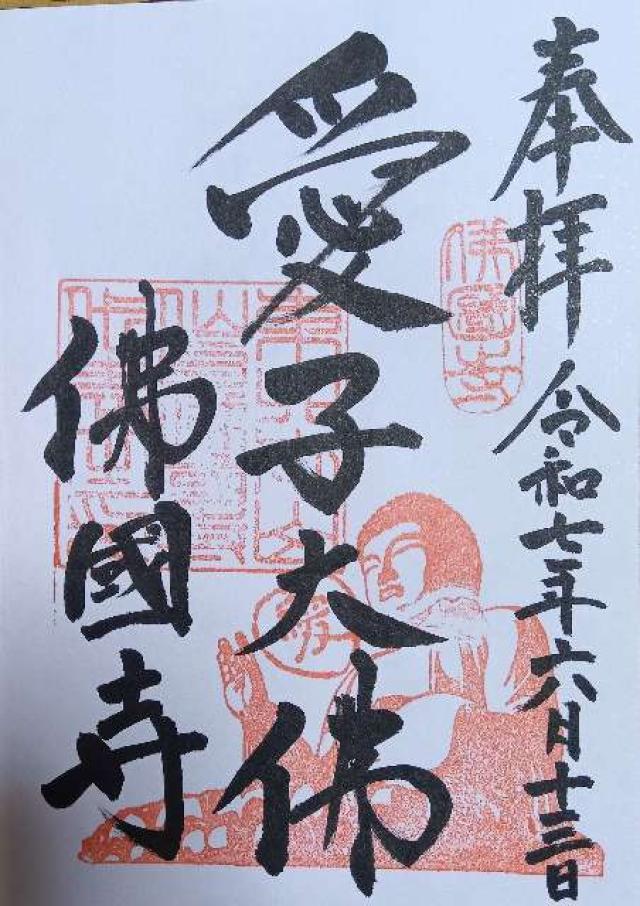 奉拝
令和七年六月十三日
佛國寺
愛子大佛
佛國寺